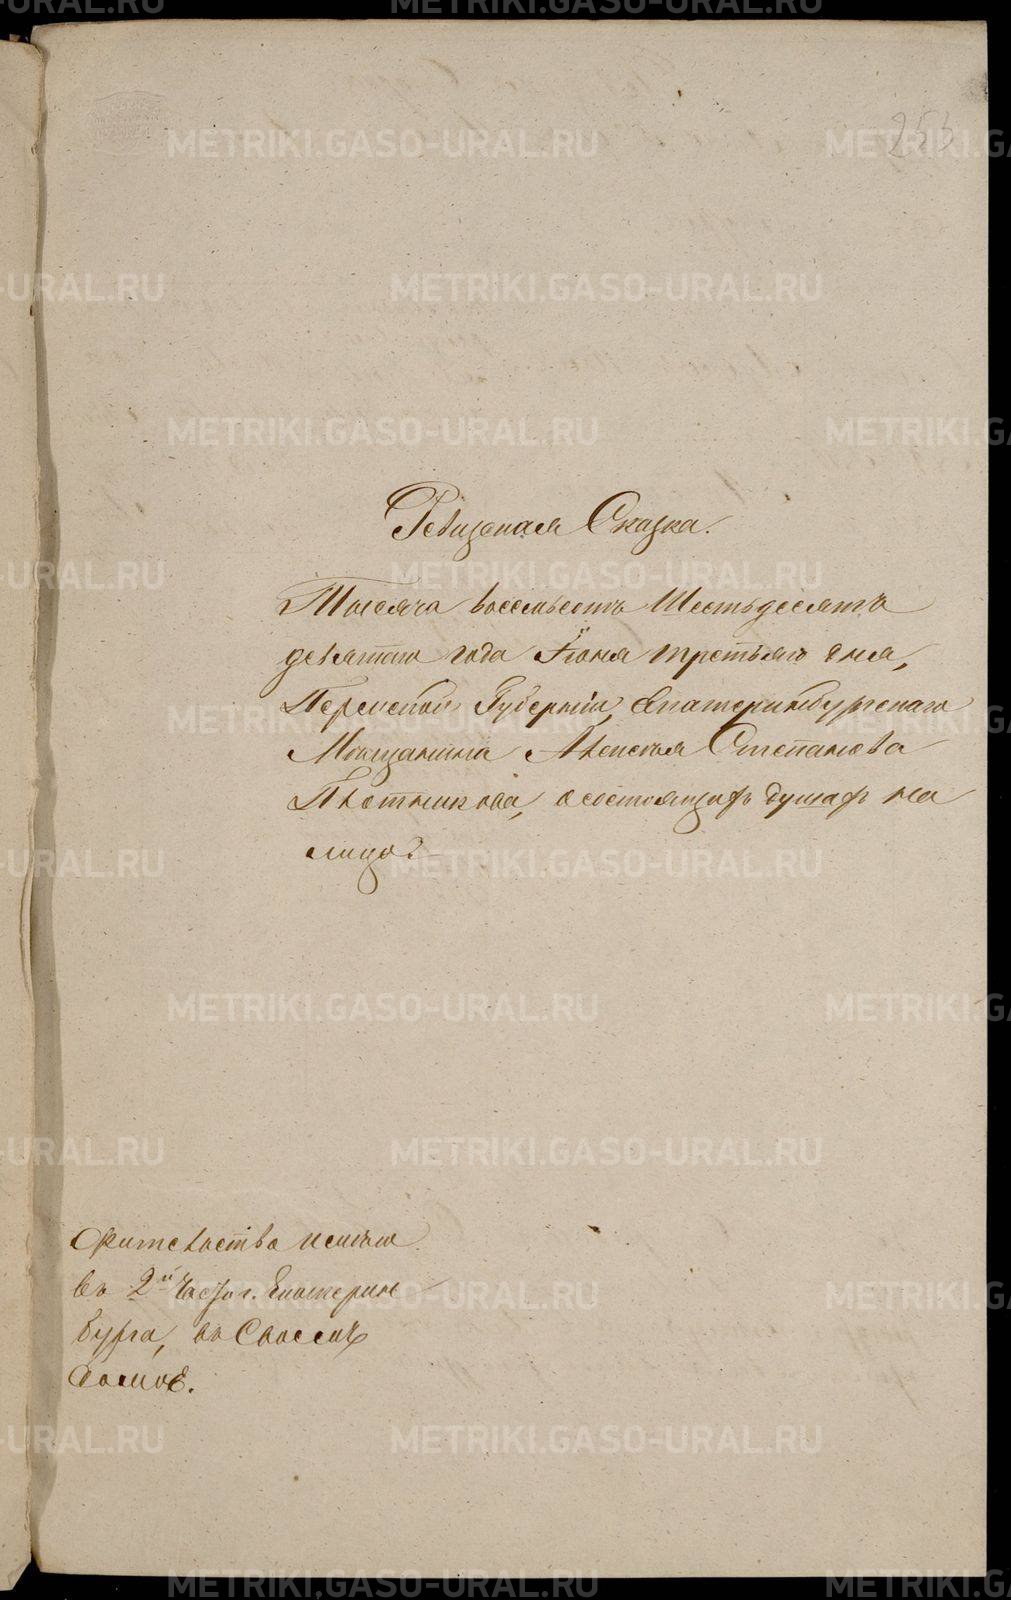 253
Ревизская Сказка.
Тысяча восемьсотъ Шестьдесятъ
девятаго года Іюня третьяго дня,
Пермской Губерніи, Екатеринбургскаго
Мѣщанина Алексѣя Степанова
Плотникова, о состоящихъ душахъ на
лицо?
Жительство имѣю
въ 2й Части г. Екатерин
бурга, въ Своемъ
домѣ.
METRIKI.GASO-URAL.RU